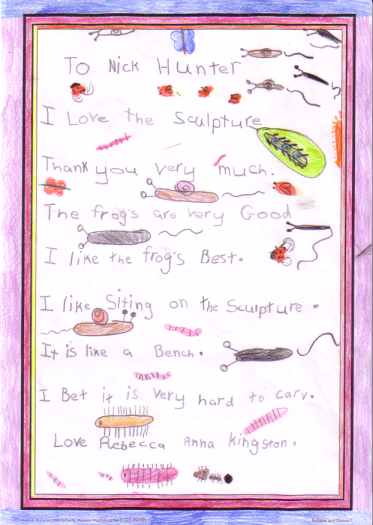 To Nick Hunter
I Love the Sculpture
Thank you very much.
The frog's are very Good
I like the frog's Best.
I like Siting on the Sculpture.
It is like a Bench.
I Bet it is very hard to carv.
Love Rebecca Anna Kingston.